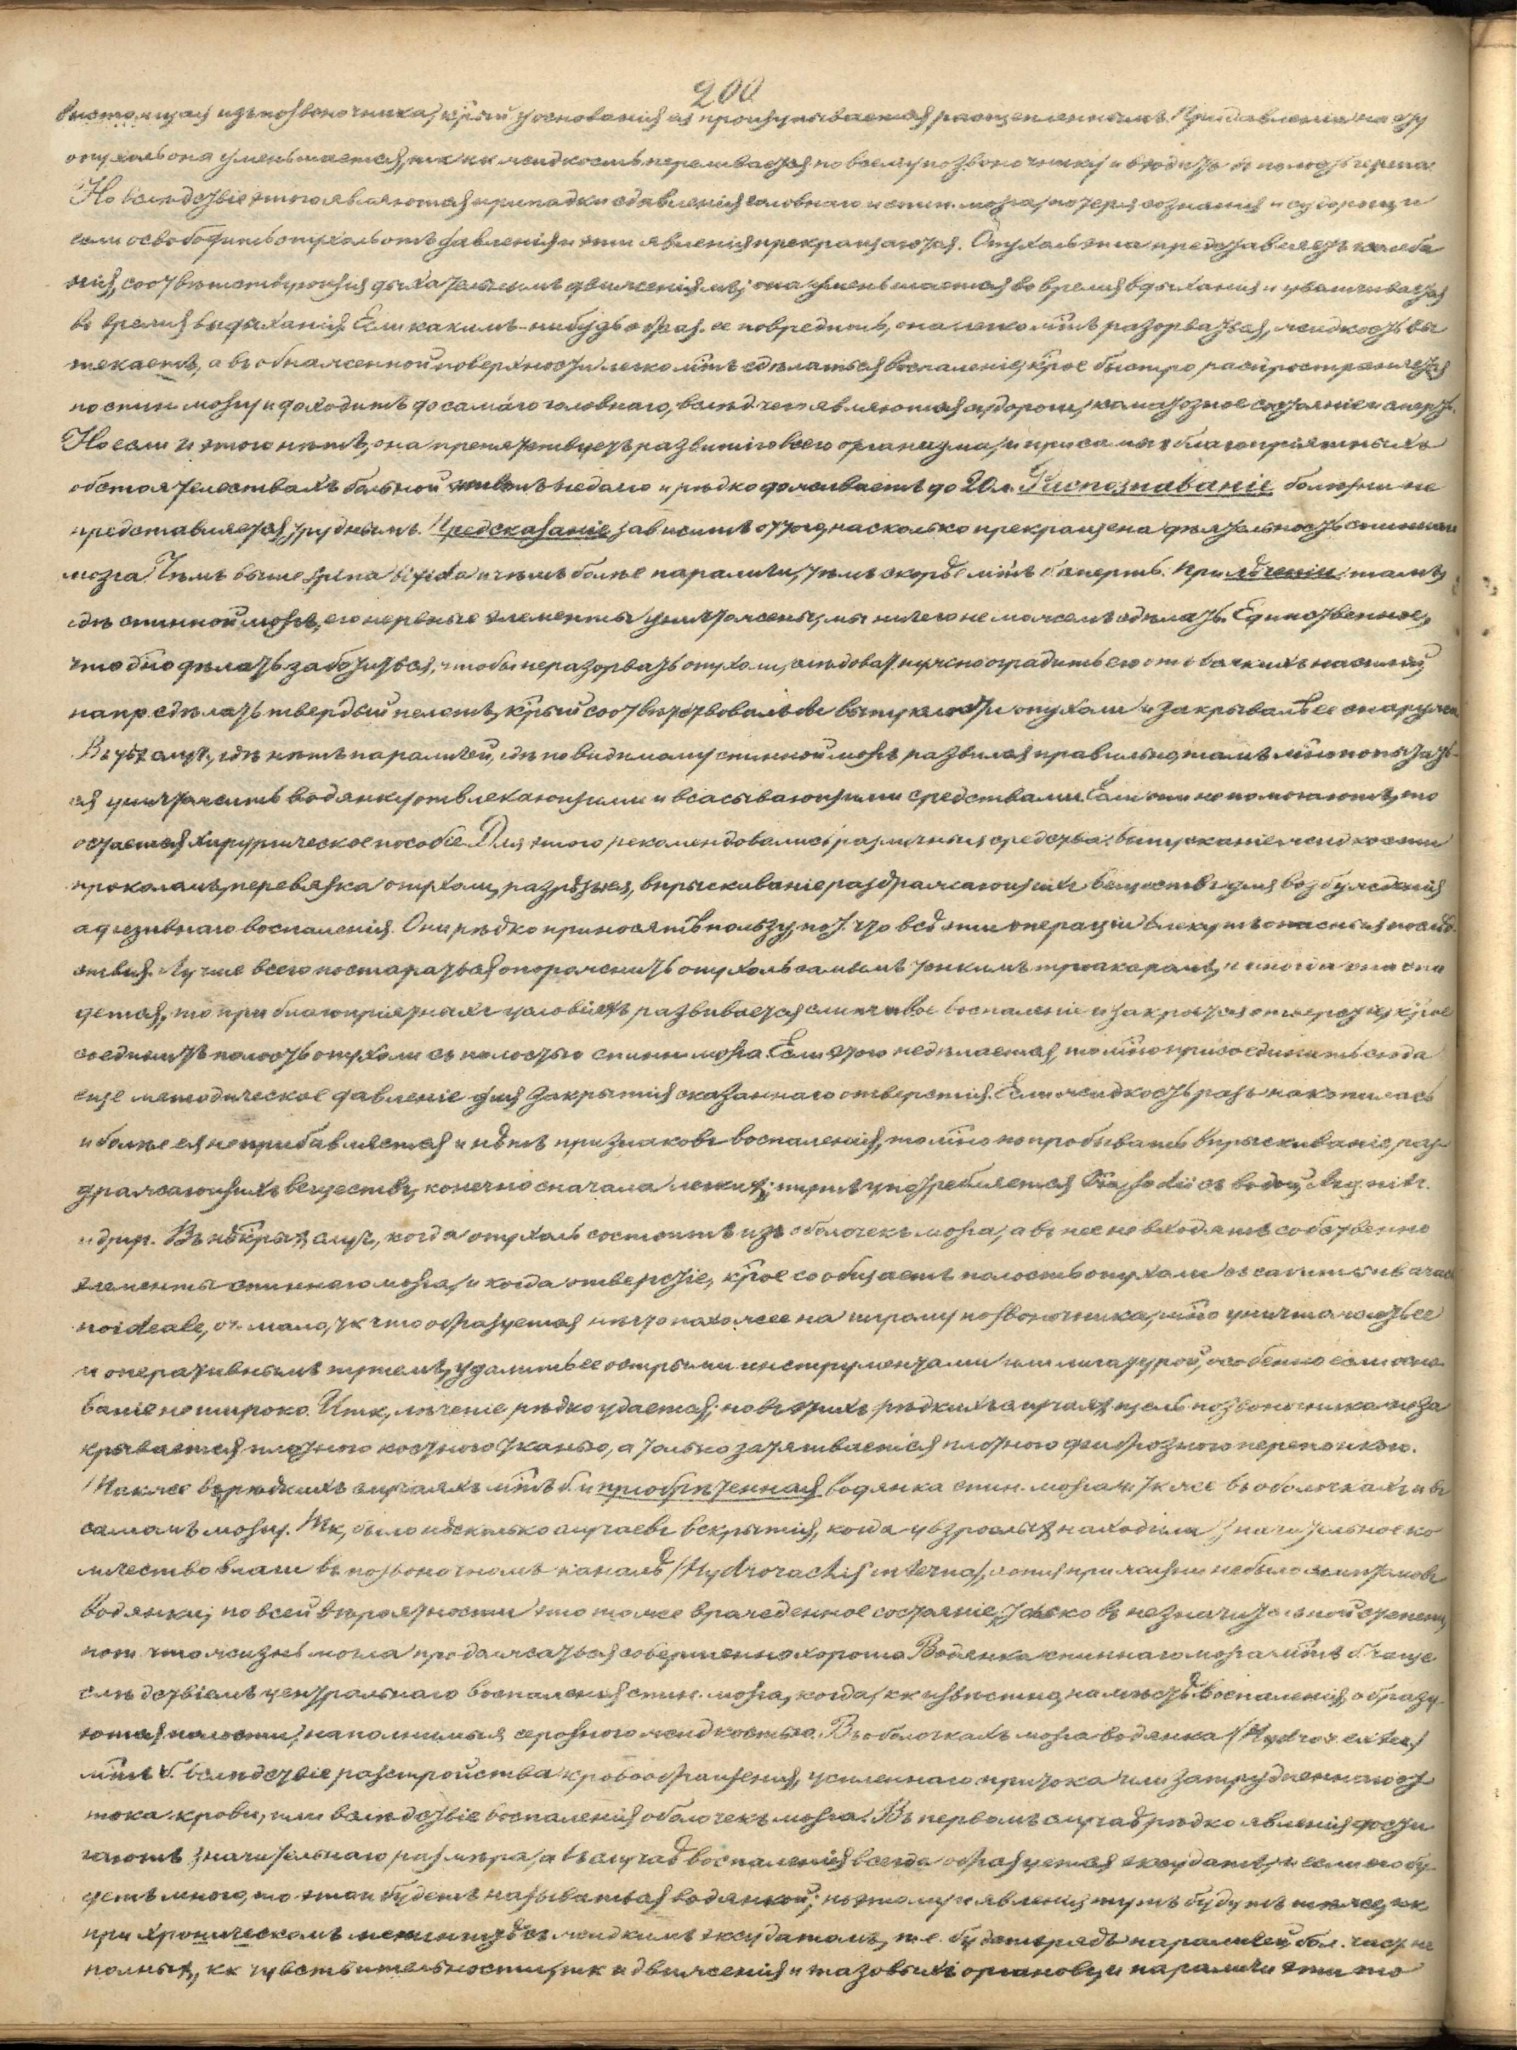 200
выстоящая изъ позвоночника, к̂рый у основанія ея прощупывается расщепленнымъ. При давленіи на эту
опухоль она уменьшается, тк кк жидкость переливается по всему позвоночнику и входитъ въ полость черепа.
Но вслѣдствіе этого являются припадки сдавленія головнаго и спин. мозга, потеря сознанія и судороги и
если освободить опухоль отъ давленія и эти явленія прекращаются. Опухоль эта представляетъ колеба
нія, соотвѣтствующія дыхательнымъ движеніямъ; она уменьшается во время вдыханія и увеличивается
во время выдыханія. Если какимъ-нибудь образ. ее повредить, она легко м̂тъ разорваться, жидкость вы
текаетъ, а въ обнаженной поверхности легко м̂тъ сдѣлаться воспаленіе, к̂рое быстро распространяется
по спин. мозгу и доходитъ до самаго головнаго, вслѣд. чего являются судороги, коматозное состояніе и смерть.
Но если и этого нѣтъ, она препятствуетъ развитію всего организма, и при самыхъ благопріятныхъ
обстоятельствахъ больной живетъ недолго и рѣдко доживаетъ до 20 л. Распознаваніе болѣзни не
представляется труднымъ. Предсказаніе зависитъ оттого, насколько прекращена дѣятельность спиннаго
мозга. Чѣмъ выше spina bifida и чѣмъ болѣе параличи, тѣмъ скорѣе м̂тъ б. смерть. При лѣченіи тамъ,
гдѣ спинной мозгъ, его нервные элементы уничтожены, мы ничего не можемъ сдѣлать. Единственное,
что д̂но дѣлать заботиться, чтобы не разорвать опухоли, слѣдоват. нужно оградить ее отъ всякихъ насилій,
напр. сдѣлать твердый пелотъ, к̂рый соотвѣтствовалъ бы выпуклости опухоли и закрывалъ ее снаружи.
Въ тѣх случ., гдѣ нѣтъ параличей, гдѣ по видимому спинной мозгъ развился правильно, тамъ м̂но попытать-
ся уничтожить водянку отвлекающими и всасывающими средствами. Если они не помогаютъ, то
остается хирургическое пособіе. Для этого рекомендовались различныя средства: выпусканіе жидкости
проколомъ, перевязка опухоли, разрѣзы ея, впрыскиваніе раздражающихъ веществъ для возбужденія
адгезивнаго воспаленія. Они рѣдко приносятъ пользу, пот. что всѣ эти операціи влекутъ опасныя послѣд-
ствія. Лучше всего постараться опорожнить опухоль самымъ тонкимъ троакаромъ, и когда она спа
дется, то при благопріятныхъ условіяхъ развивается слипчивое воспаленіе и закроется отверстіе, к̂рое
соединяетъ полость опухоли съ полостью спинн. мозга. Если этого недѣлается, то м̂но присоединить сюда
еще методическое давленіе для закрытія сказаннаго отверстія. Если жидкость разъ накопилась
и болѣе ея не прибавляется и нѣтъ признаковъ воспаленія, то м̂но попробывать впрыскиваніе раз-
дражающихъ веществъ, конечно сначала легких; употребляется съ водой, Arg. nitr.
и друг. Въ нѣк̂рых случ., когда опухоль состоитъ изъ оболочекъ мозга, а въ нее не входятъ собственно
элементы спиннаго мозга, и когда отверстіе, к̂рое сообщаетъ полость опухоли съ arach
noideale, оч. мало, тк что образуется нѣчто похожее на позвоночника, м̂но уничтожать ее
и оперативнымъ путемъ, удалить ее острыми инструментами или лигатурой, особенно если осно-
ваніе не широко. Итк, лѣченіе рѣдко удается; но въ этихъ рѣдкихъ случаях щель позвоночника не за
крывается плотною костною тканью, а только затягивается плотною фиброзною перепонкою.
Также въ рѣдкихъ случаяхъ м̂тъ б. и пріобрѣтенная водянка спин. мозга, и ткже въ оболочкахъ и въ
самомъ мозгу. Тк, было нѣсколько случаевъ вскрытія, когда у взрослых находили значительное ко
личество влаги въ позвоночномъ каналѣ (Hydrorachis interna), хотя при жизни не было признаковъ
водянки; по всей вѣроятности это тоже врожденное состояніе, только въ незначительной степени,
пот. что жизнь могла продолжаться совершенно хорошо. Водянка спиннаго мозга м̂тъ б. чаще
слѣдствіемъ центральнаго воспаленія спин. мозга, когда, кк извѣстно, на мѣстѣ воспаленія образу-
ются полости, наполнимыя серозною жидкостью. Въ оболочкахъ мозга водянка (Hydror. exter.)
м̂тъ б. вслѣдствіе разстройства кровообращенія, усиленнаго притока или затрудненнаго от
тока крови, или вслѣдствіе воспаленія оболочекъ мозга. Въ первомъ случаѣ рѣдко явленія дости
гаютъ значительнаго размѣра, а въ случаѣ воспаленія всегда образуется эксудатъ, и если его бу
детъ много, то это и будетъ называться водянкой; поэтому и явленія тутъ будутъ тѣже, кк
при хроническомъ менингитѣ съ жидкимъ эксудатомъ, т.е. будетъ рядъ параличей, бол. част. не
полных, кк чувствительности, тк и движенія и тазовыхъ органовъ, и параличи эти то